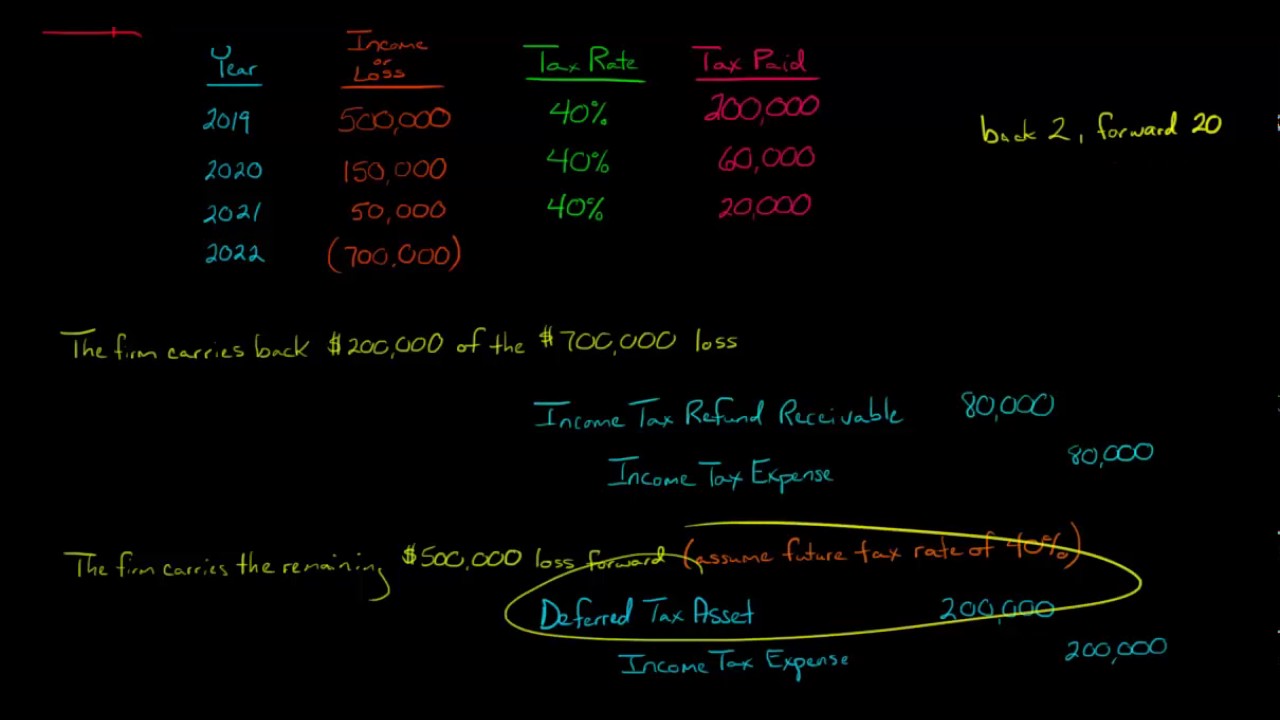 Year Income or Loss Tax Rate Tax Paid
2019 500,000 40% 200,000
2020 150,000 40% 60,000
2021 50,000 40% 20,000
2022 (700,000)
back 2, forward 20
The firm carries back $200,000 of the $700,000 loss
Income Tax Refund Receivable 80,000
Income Tax Expense 80,000
The firm carries the remaining $500,000 loss forward (assume future tax rate of 40%)
Deferred Tax Asset 200,000
Income Tax Expense 200,000